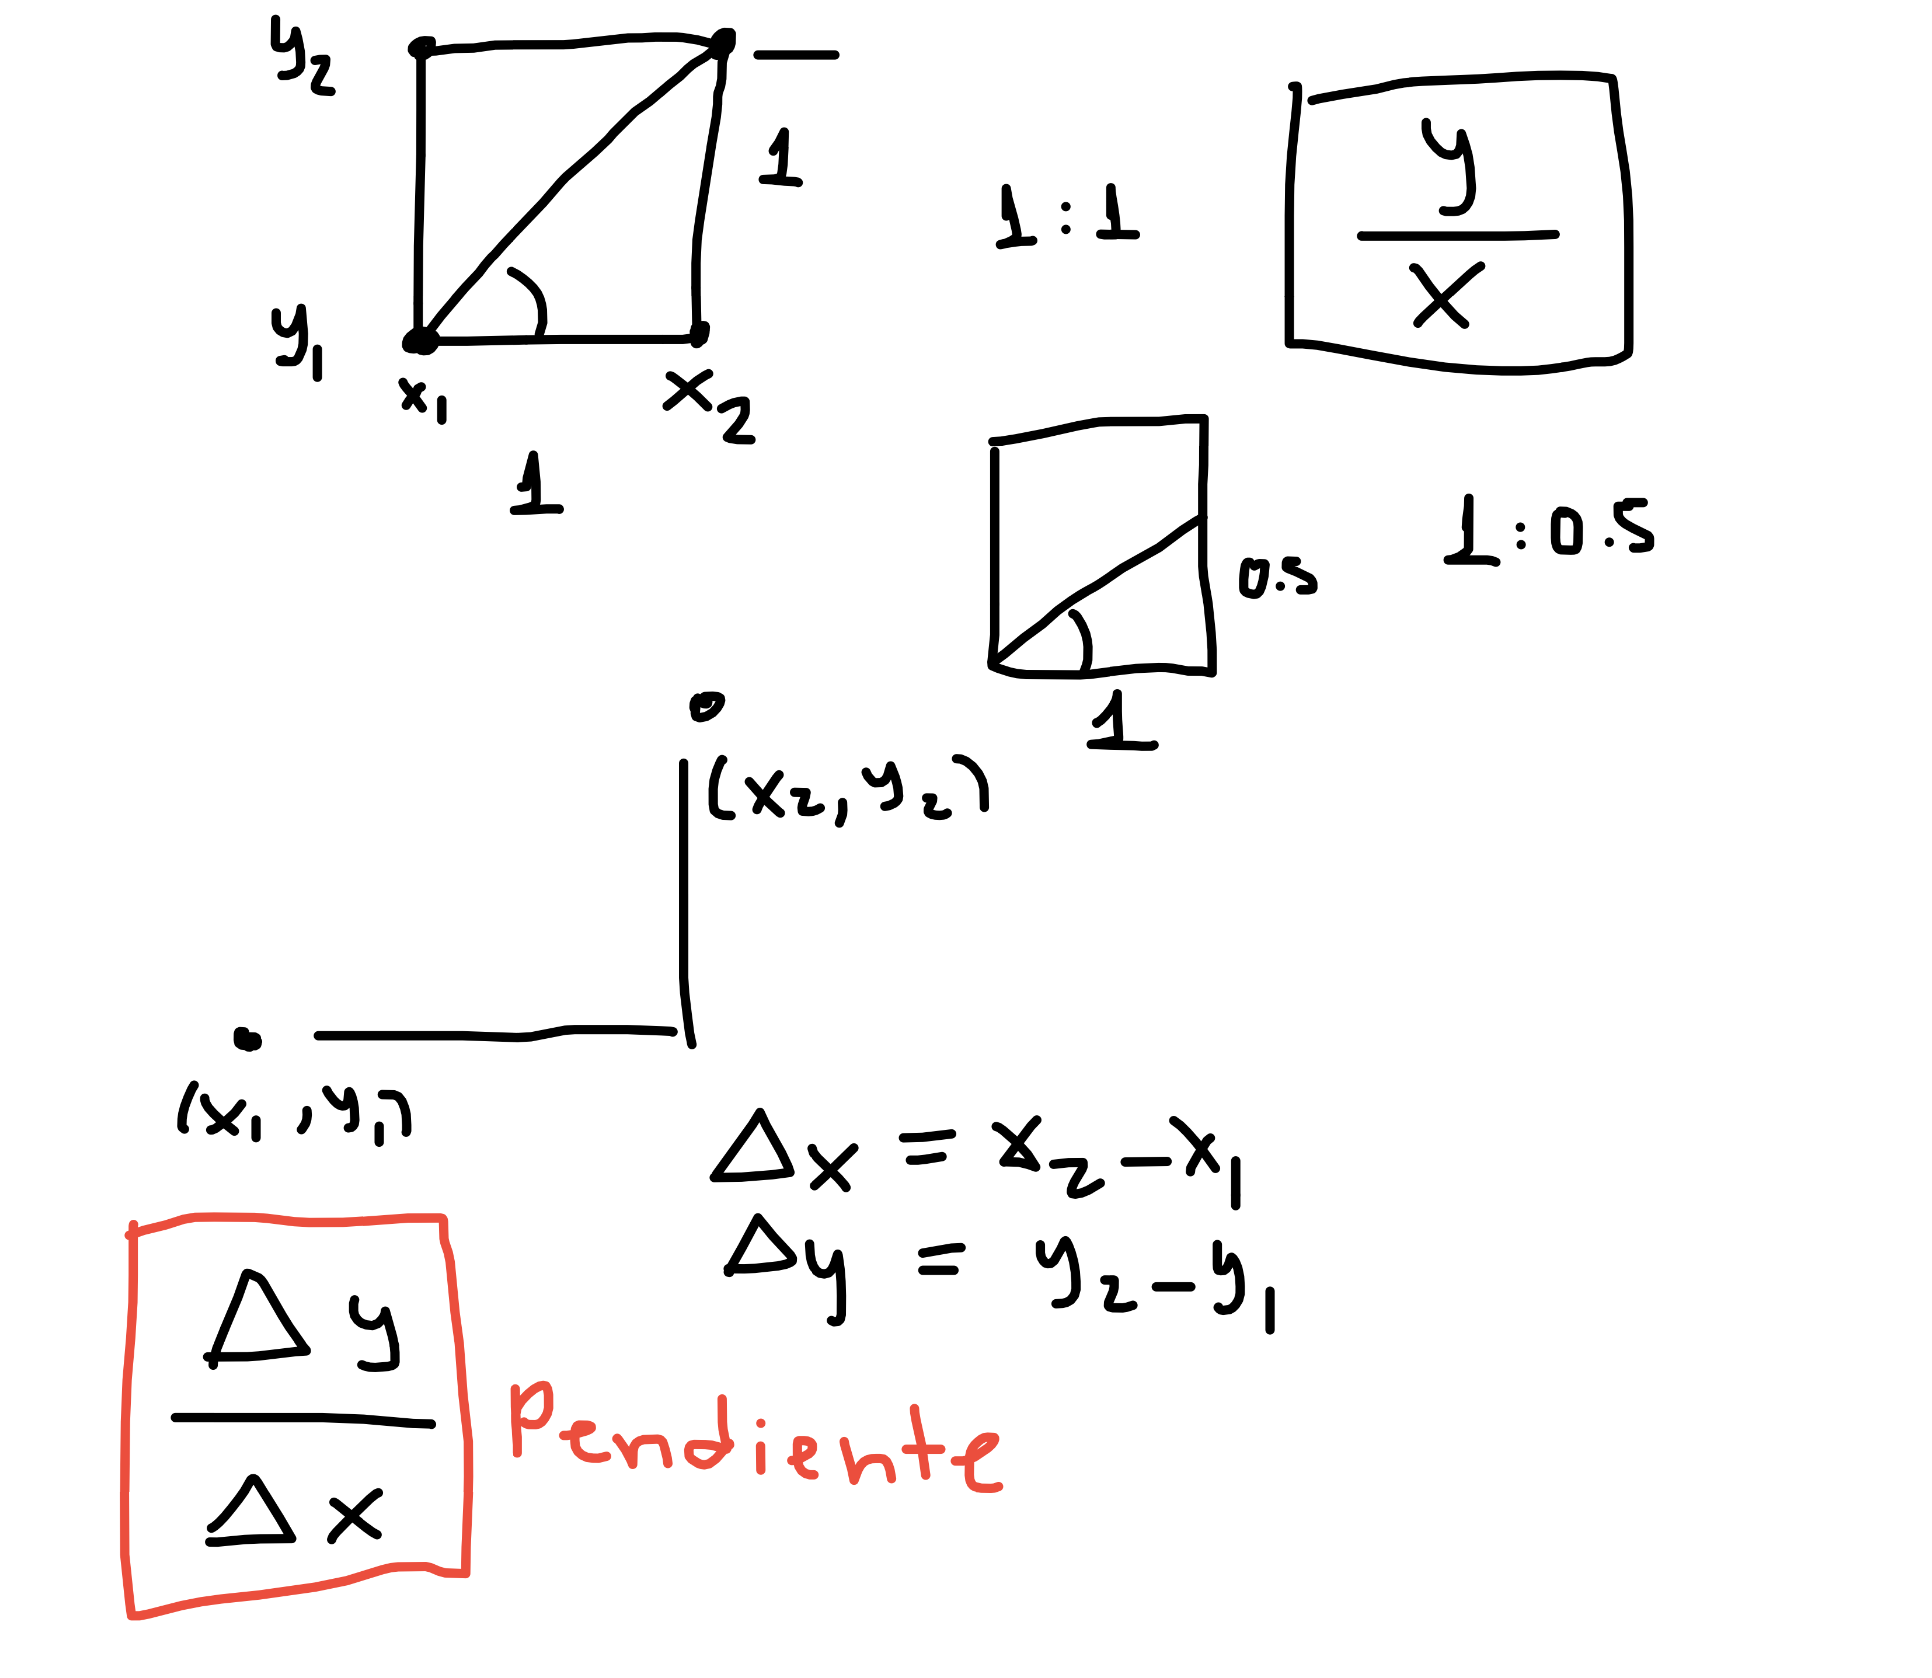 y₂
1
y₁
x₁ x₂
1
1 : 1
y
x
0.5
1
1 : 0.5
(x₂, y₂)
(x₁, y₁)
Δx = x₂ – x₁
Δy = y₂ – y₁
Δ y
Δ x
Pendiente